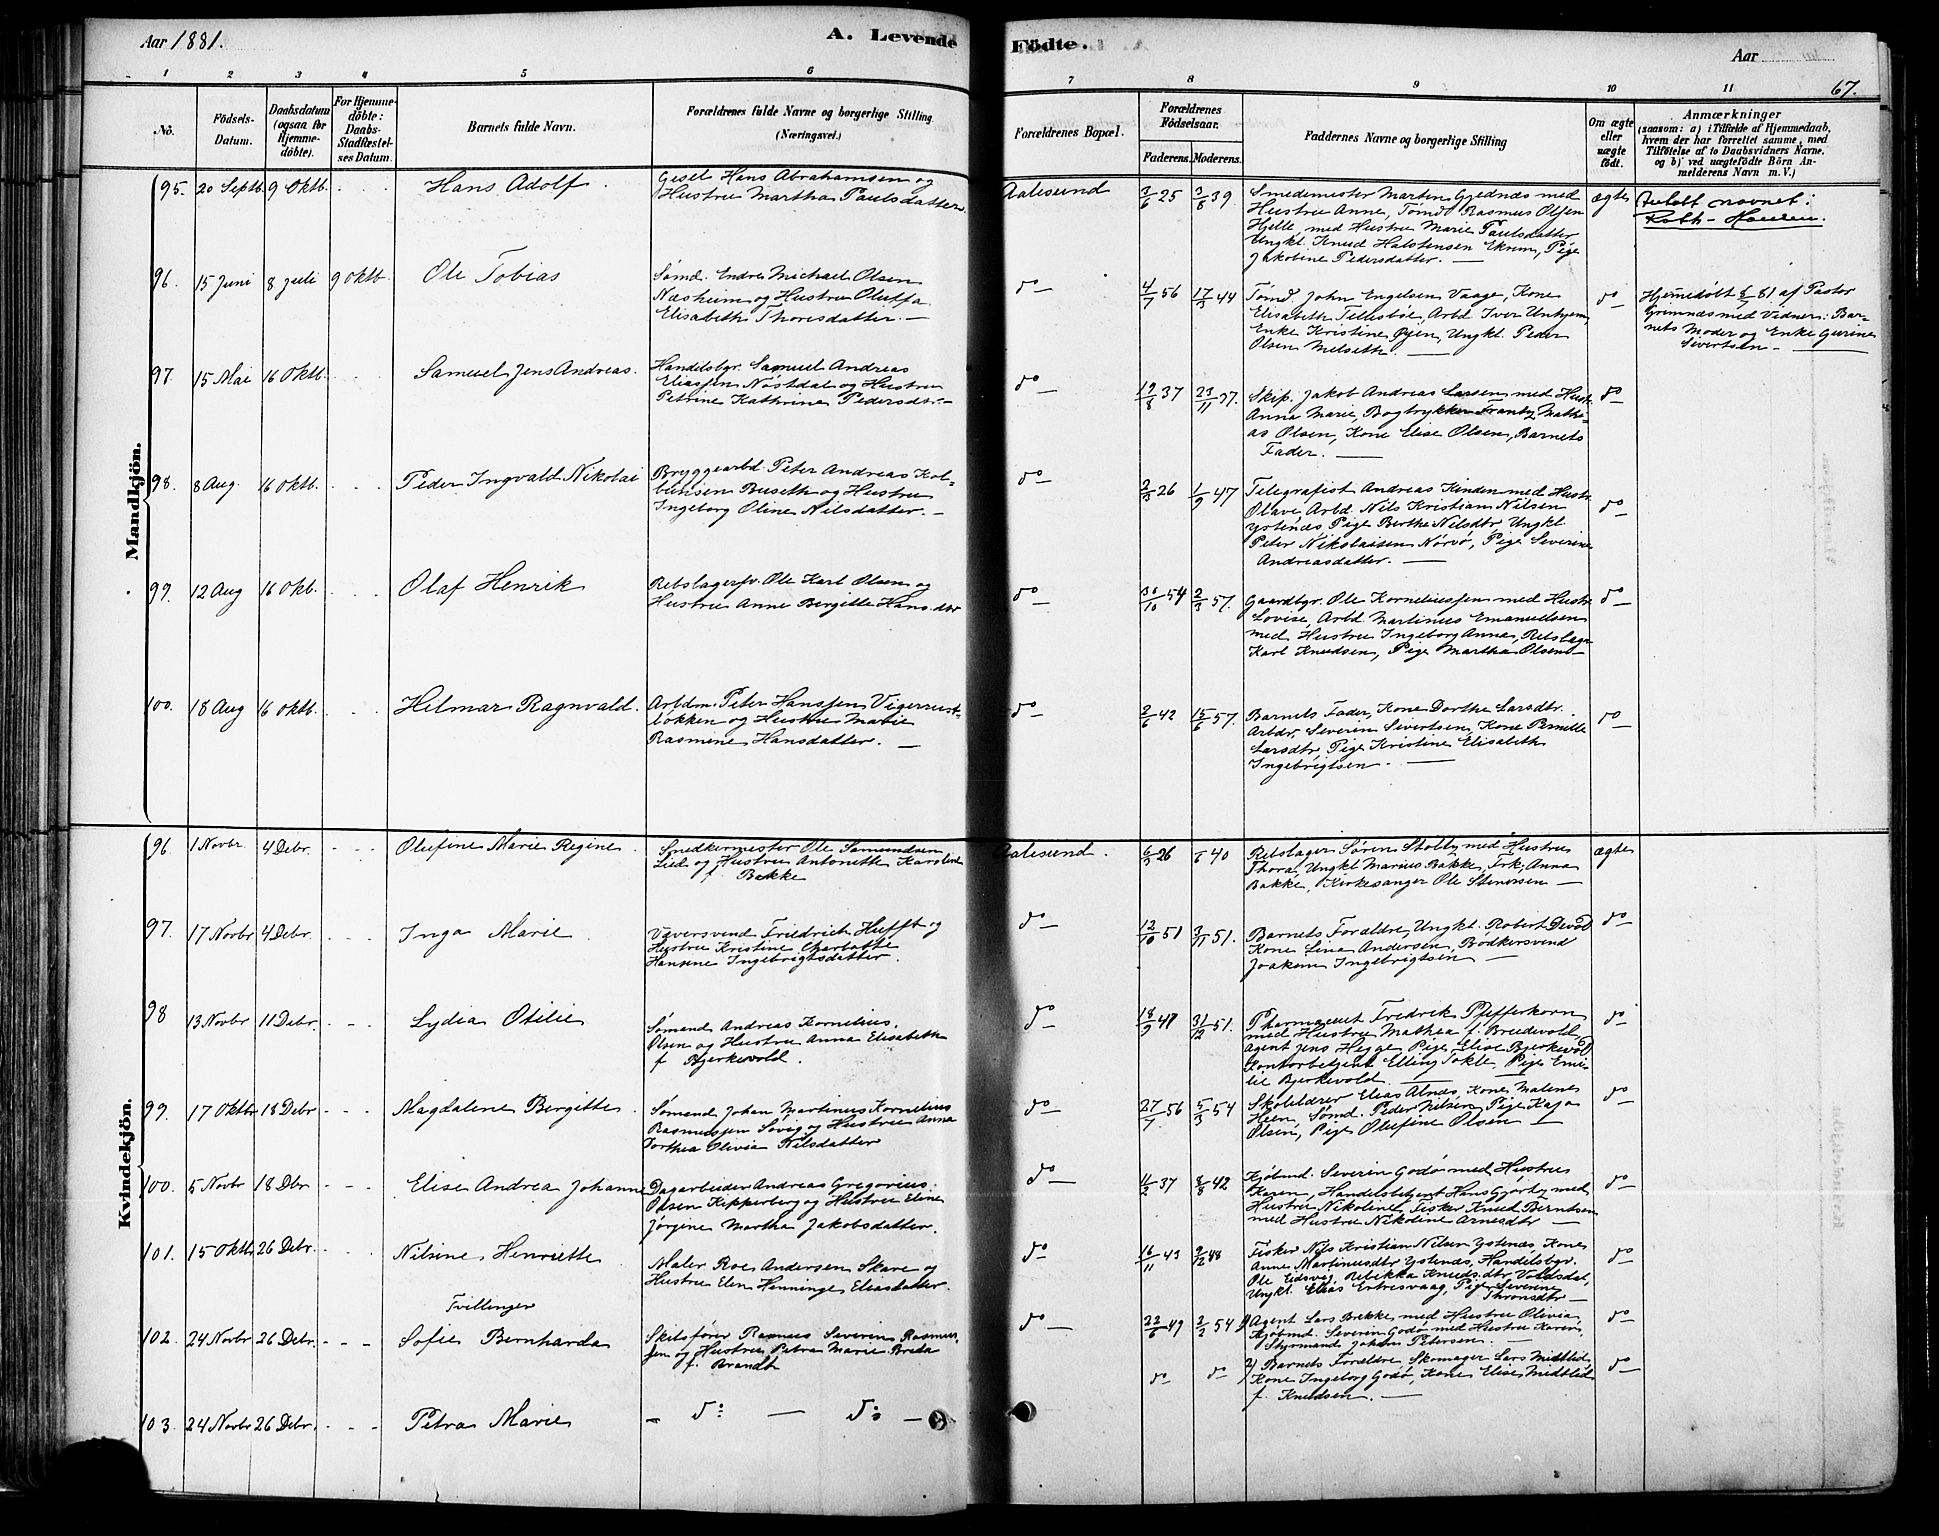 Aar 1881.
A. Levende
Födte.
Aar
67.
1 2 3 4 5 6 7 8 9 10 11
No.
Födsels-
Datum.
Daabsdatum
(ogsaa for
Hjemme-
döbte).
For Hjemme-
döbte:
Daabs-
Stadfæstel-
ses Datum.
Barnets fulde Navn.
Forældrenes fulde Navne og borgerlige Stilling
(Næringsvei.)
Forældrenes Bopæl.
Forældrenes
Födselsaar.
Faderens. Moderens.
Faddernes Navne og borgerlige Stilling
Om ægte
eller
uægte
födt.
Anmærkninger
(saasom: a) i Tilfælde af Hjemmedaab,
hvem der har forrettet samme, med
Tilföielse af to Daabsvidners Navne,
og b) ved uægtefödte Börn An-
melderens Navn m. V.)
Mandkjön.
95. 20 Septb. 9 Oktb. Hans Adolf.
Gesel Hans Abrahamsen og
Hustru Martha Paulsdatter
Aalesund 3/6 25 3/8 39
Smedemester Marten Gjednæs med
Hustru Anne, Tømd Rasmus Olsen
Hjelle, med Hustru Marie Paulsdatter
Ungkl. Knud Halstensen Ekrem, Pige
Jakobine Pedersdatter.
ægte
navnet:
Roth-Hansen.
96. 15 Juni 8 Juli 9 Oktb. Ole Tobias
Sømd. Endre Michael Olsen
Næsheim og Hustru Oluffa
Elisabeth Thoresdatter.
do 4/7 56 17/3 44
Tømd. John Engelsen Vaage, Kone
Elisabeth Tellesbøe, Arbd Iver Unhjem,
Enke Kristine Øyen, Ungkl. Peder
Olsen Melseth.
do
Hjemmedøbt 8/7 81 af Pastor
Grimnæs med Vidner: Bar-
nets Moder og Enke Gurine
Sivertsen
97. 15 Mai 16 Oktb. Samuel Jens Andreas.
Handelsbgr. Samuel Andreas
Eliassen Nøstdal og Hustru
Petrine Kathrine Pedersdtr.
do 19/8 37 23/11 37.
Skip. Jakob Andreas Larsen med Hustr
Anna Marie, Bogtrykker Frantz Mathi-
as Olsen, Kone Elise Olsen, Barnets
Fader.
do
98. 8 Aug. 16 Oktb. Peder Ingvald Nikolai
Bryggearbd. Peter Andreas Kol-
bensen Buseth og Hustru
Ingeborg Oline Nilsdatter.
do 2/3 26 1/9 47
Telegrafist Andreas Kinden med Hustr.
Olave, Arbd Nils Kristian Nilsen
Ystenæs Pige Berthe Nilsdtr, Ungkl
Peter Nikolaisen Nørvø, Pige Severine
Andreasdatter.
do
99. 12 Aug 16 Okb. Olaf Henrik
Rebslagersv. Ole Karl Olsen og
Hustru Anne Bergitte Hansdtr
do 30/10 54 2/3 57.
Gaardbgr. Ole Korneliussen med Hustr
Lovise, Arbd Martinus Emanuelsen
med Hustru Ingeborg Anne, Rebslager
Karl Knudsen, Pige Martha Olsen
do
100. 18 Aug 16 Oktb. Hilmar Ragnvald.
Arbdm. Peter Hanssen Vigerust-
løkken og Hustru Marie
Rasmine Hansdatter.
do 2/6 42 15/6 57.
Barnets Fader, Kone Dorthe Larsdtr.
Arbdr. Severin Sivertsen, Kone Pernille
Larsdtr, Pige Kristine Elisabeth
Ingebrigtsen.
do
Kvindekjön.
96. 1 Novbr 4 Debr. Olufine Marie Regine.
Snedkermester Ole Samundsen
Lied og Hustru Antonette Karoline
f. Bakke
Aalesund. 6/3 26 40
Rebslager Søren Stolby med Hustru
Thora, Ungkl Marius Bakke, Frk. Anna
Bakke, Kirkesanger Ole Stenersen
ægte
97. 17 Novbr 4 Debr. Inga Marie
Væversvend Friedrich Hufft og
Hustru Kristine Charlotte
Hansine Ingebrigtsdatter.
do 12/10 51 3/11 51.
Barnets Forældre, Ungkl. Robert Devold
Kone Lina Andersen, Bødkersvend
Joakem Ingebrigtsen
do
98 13 Novbr 11 Debr. Lydia Otilie
Sømand Andreas Kornelius.
Olsen og Hustru Anna Elisabeth
f. Bjerkevold.
do 18/9 47 31/12 51.
Pharmaceut Fredrik Pfefferkorn
med Hustru Mathea f. Breedevold
Agent Jens Hegge Pige Elise Bjerkevold
Kontorbetjent Elling Tokle, Pige Emi-
lie Bjerkevold.
do
99. 17 Oktbr 18 Debr Magdalene Bergitte.
Sømand Johan Martinus Kornelius
Rasmussen Søvig og Hustru Anna
Dorthea Olivia Nilsdatter
do 27/7 56 5/3 54
Skolelærer Elias Alnæs, Kone Malene
Heen, Sømd. Peder Nilsen Pige Kaja
Olsen, Pige Olufine Olsen
do
100. 5 Novbr 18 Dbr. Elise Andrea Johanne
Dagarbeider Andreas Gregorius.
Olsen Kipperberg og Hustru Eline
Jørgine Martha Jakobsdatter.
do 11/2 37 8/8 42
Kjøbmd. Severin Godø med Hustru
Karen, Handelsbetjent Hans Gjørtz med
Hustru Nikoline, Fisker Knud Berntsen
med Hustru Nikoline Arnesdtr
do
101. 15 Oktb 26 Debr. Nilsine Henriette
Maler Roe Andersen Skare og
Hustru Elen Henninge Eliasdatter.
do 16/11 43 9/12 48
Fisker Nils Kristian Nilsen Ystenæs, Kone
Anne Martinusdtr Ystenæs, Handelsbgr.
Ole Eidsvig, Rebikka Knudsdtr Voldsdal,
Ungkl. Elias Ertresvaag, Pige Severine
Thronsdtr
do
Tvillinger
102. 24 Novbr 26 Debr. Sofie Bernharda
Skibsfører Rasmus Severin Rasmus-
sen og Hustru Petra Marie Breda
f. Brandt
do 22/6 49 2/2 54
1) Agent Lars Bakke med Hustru Olivia,
Kjøbmd. Severin Godø med Hustru Karen,
Styrmand Johan Petersen.
do
103. 24 Novbr 26 Debr. Petra Marie
do do
do do
2) Barnets Forældre, Skomager Lars Midtlid,
Kone Ingeborg Godø, Kone Elise Midtlid
f. Knudsen.
do